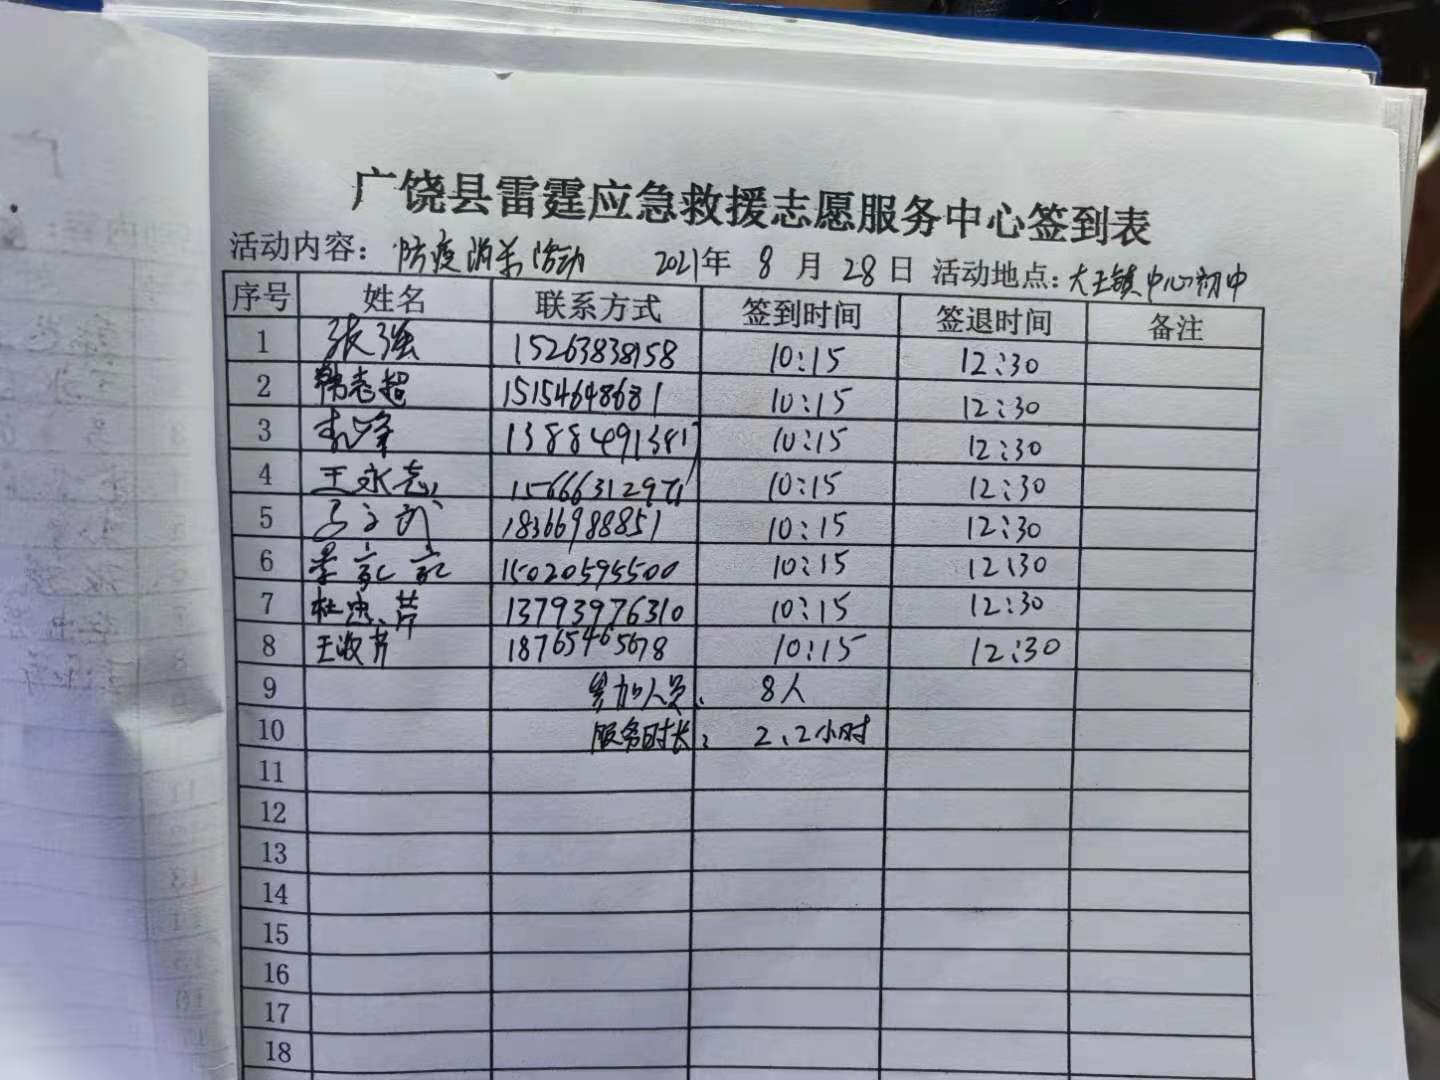 广饶县雷霆应急救援志愿服务中心签到表
活动内容：防疫消杀活动 2021年 8 月 28 日 活动地点：大王镇中心初中
序号 姓名 联系方式 签到时间 签退时间 备注
1 张强 15263838158 10:15 12:30
2 韩志超 15154648681 10:15 12:30
3 10:15 12:30
4 王永志 10:15 12:30
5 18366988851 10:15 12:30
6 15020595500 10:15 12:30
7 13793976310 10:15 12:30
8 18765465678 10:15 12:30
9 参加人员： 8人
10 服务时长： 2.2小时
11
12
13
14
15
16
17
18